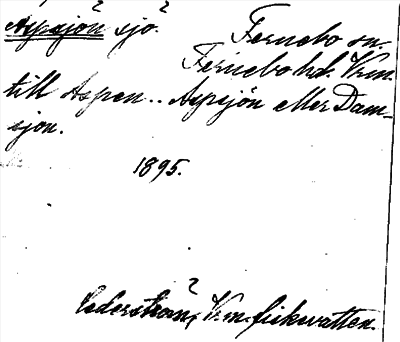 Aspsjön sjö. Fernebo sn.
Fernebo hd. Vrm.
till Aspen.. Aspsjön eller Dam-
sjön.
1895.
Cederström, Vrm. fiskvatten.